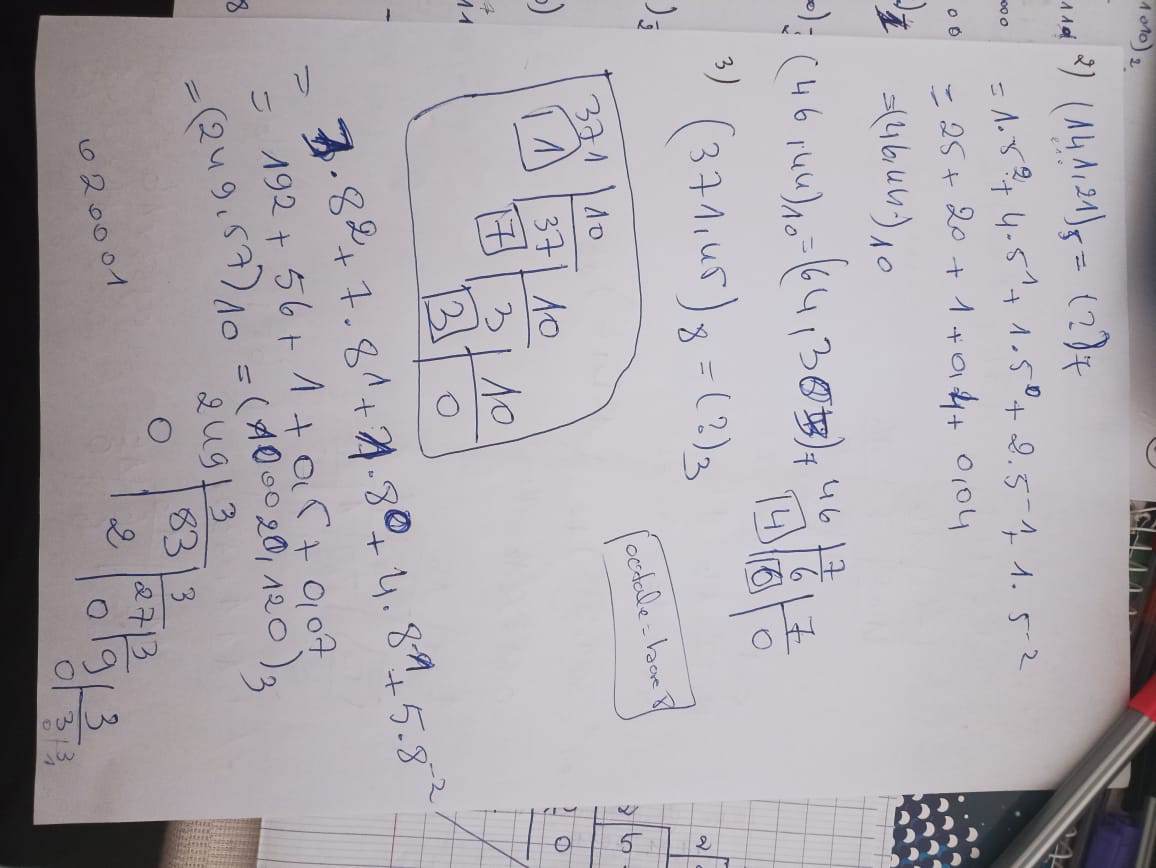 1010)₂
110
000
00
2) (141,21)₅ = (?)₇
= 1.5² + 4.5¹ + 1.5⁰ + 2.5⁻¹ + 1.5⁻²
= 25 + 20 + 1 + 0,4 + 0,04
= (46,44)₁₀
(46,44)₁₀ = (64,30
)₇
46 | 7
4 | 6 | 7
6 | 0
3) (371,45)₈ = (?)₃
octale = base 8
371 | 10
1 | 37 | 10
7 | 3 | 10
3 | 0
= 3.8² + 7.8¹ + 1.8⁰ + 4.8⁻¹ + 5.8⁻²
= 192 + 56 + 1 + 0,5 + 0,07
= (249,57)₁₀ = (100020,120)₃
249 | 3
0 | 83 | 3
2 | 27 | 3
0 | 9 | 3
0 | 3 | 3
0 1
020001
2
5
0
11
8